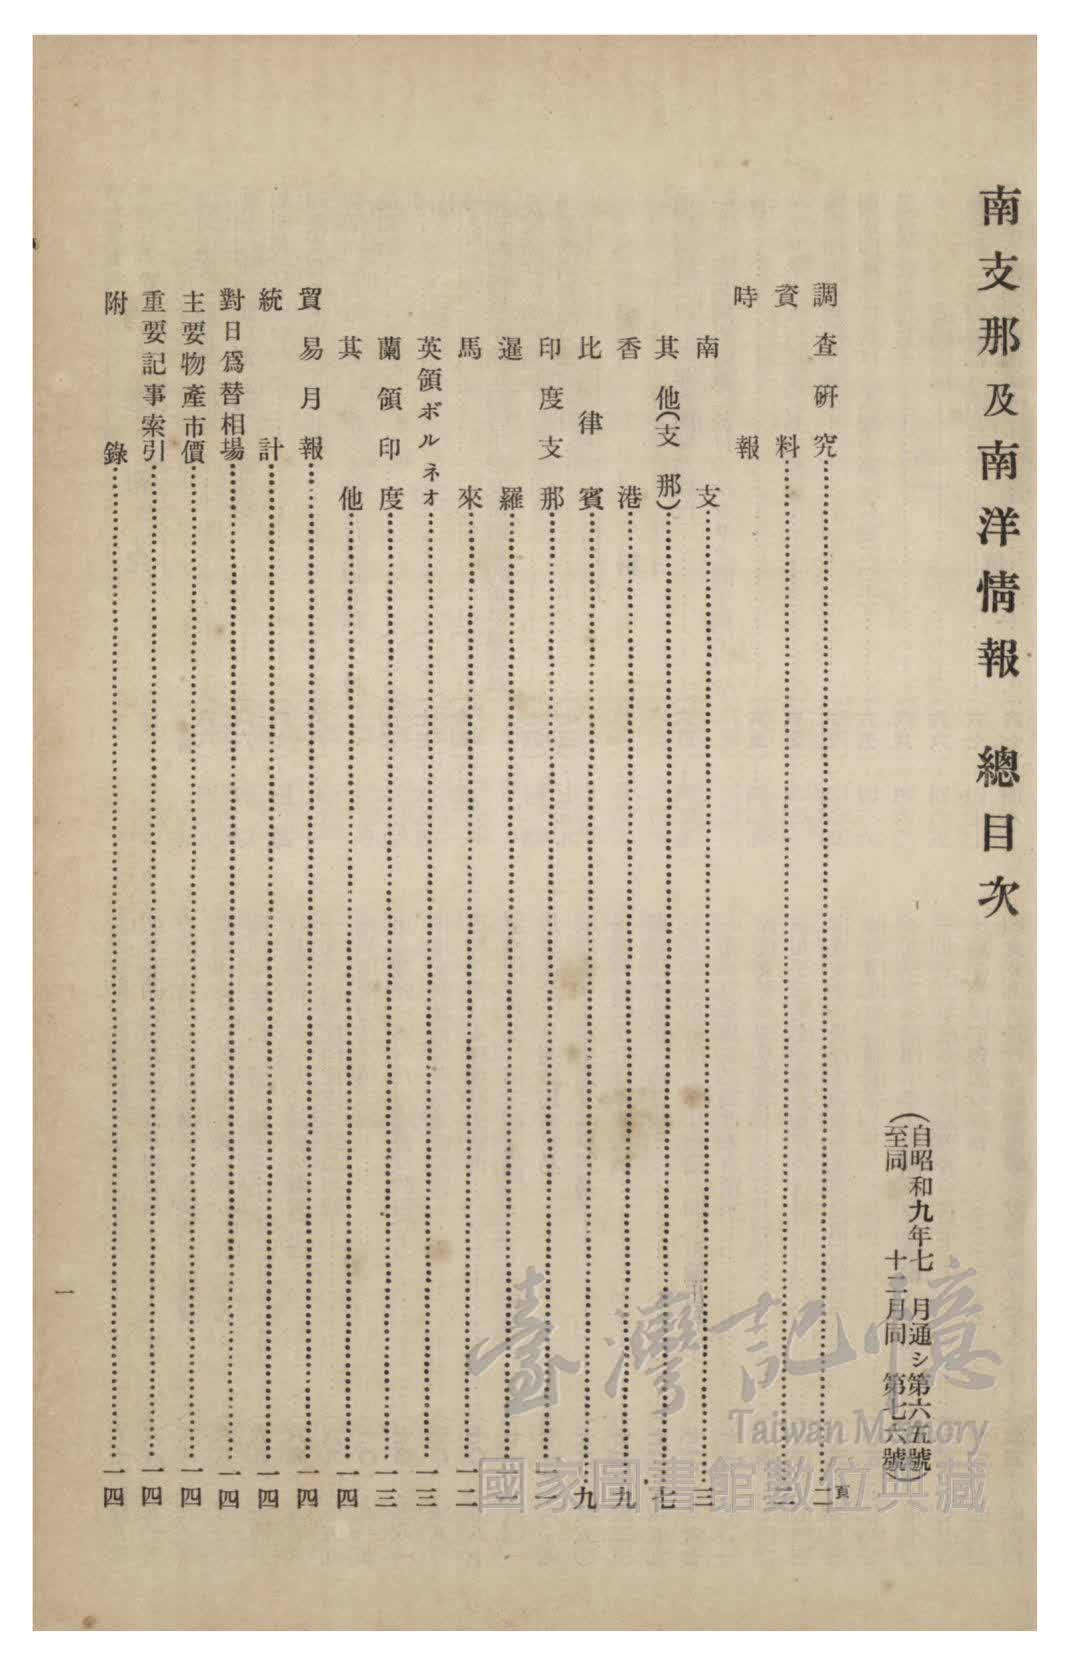 南支那及南洋情報 總目次
(自昭和九年七 月通シ第六五號
至同 十二月同 第七六號)
頁
調査研究……二
資料……二
時報
南支……三
其他(支那)……七
香港……九
比律賓……九
印度支那……一一
暹羅……一一
馬來……一二
英領ボルネオ……一三
蘭領印度……一三
其他……一四
貿易月報……一四
統計……一四
對日爲替相場……一四
主要物產市價……一四
重要記事索引……一四
附錄……一四
一
臺灣記憶
Taiwan Memory
國家圖書館數位典藏